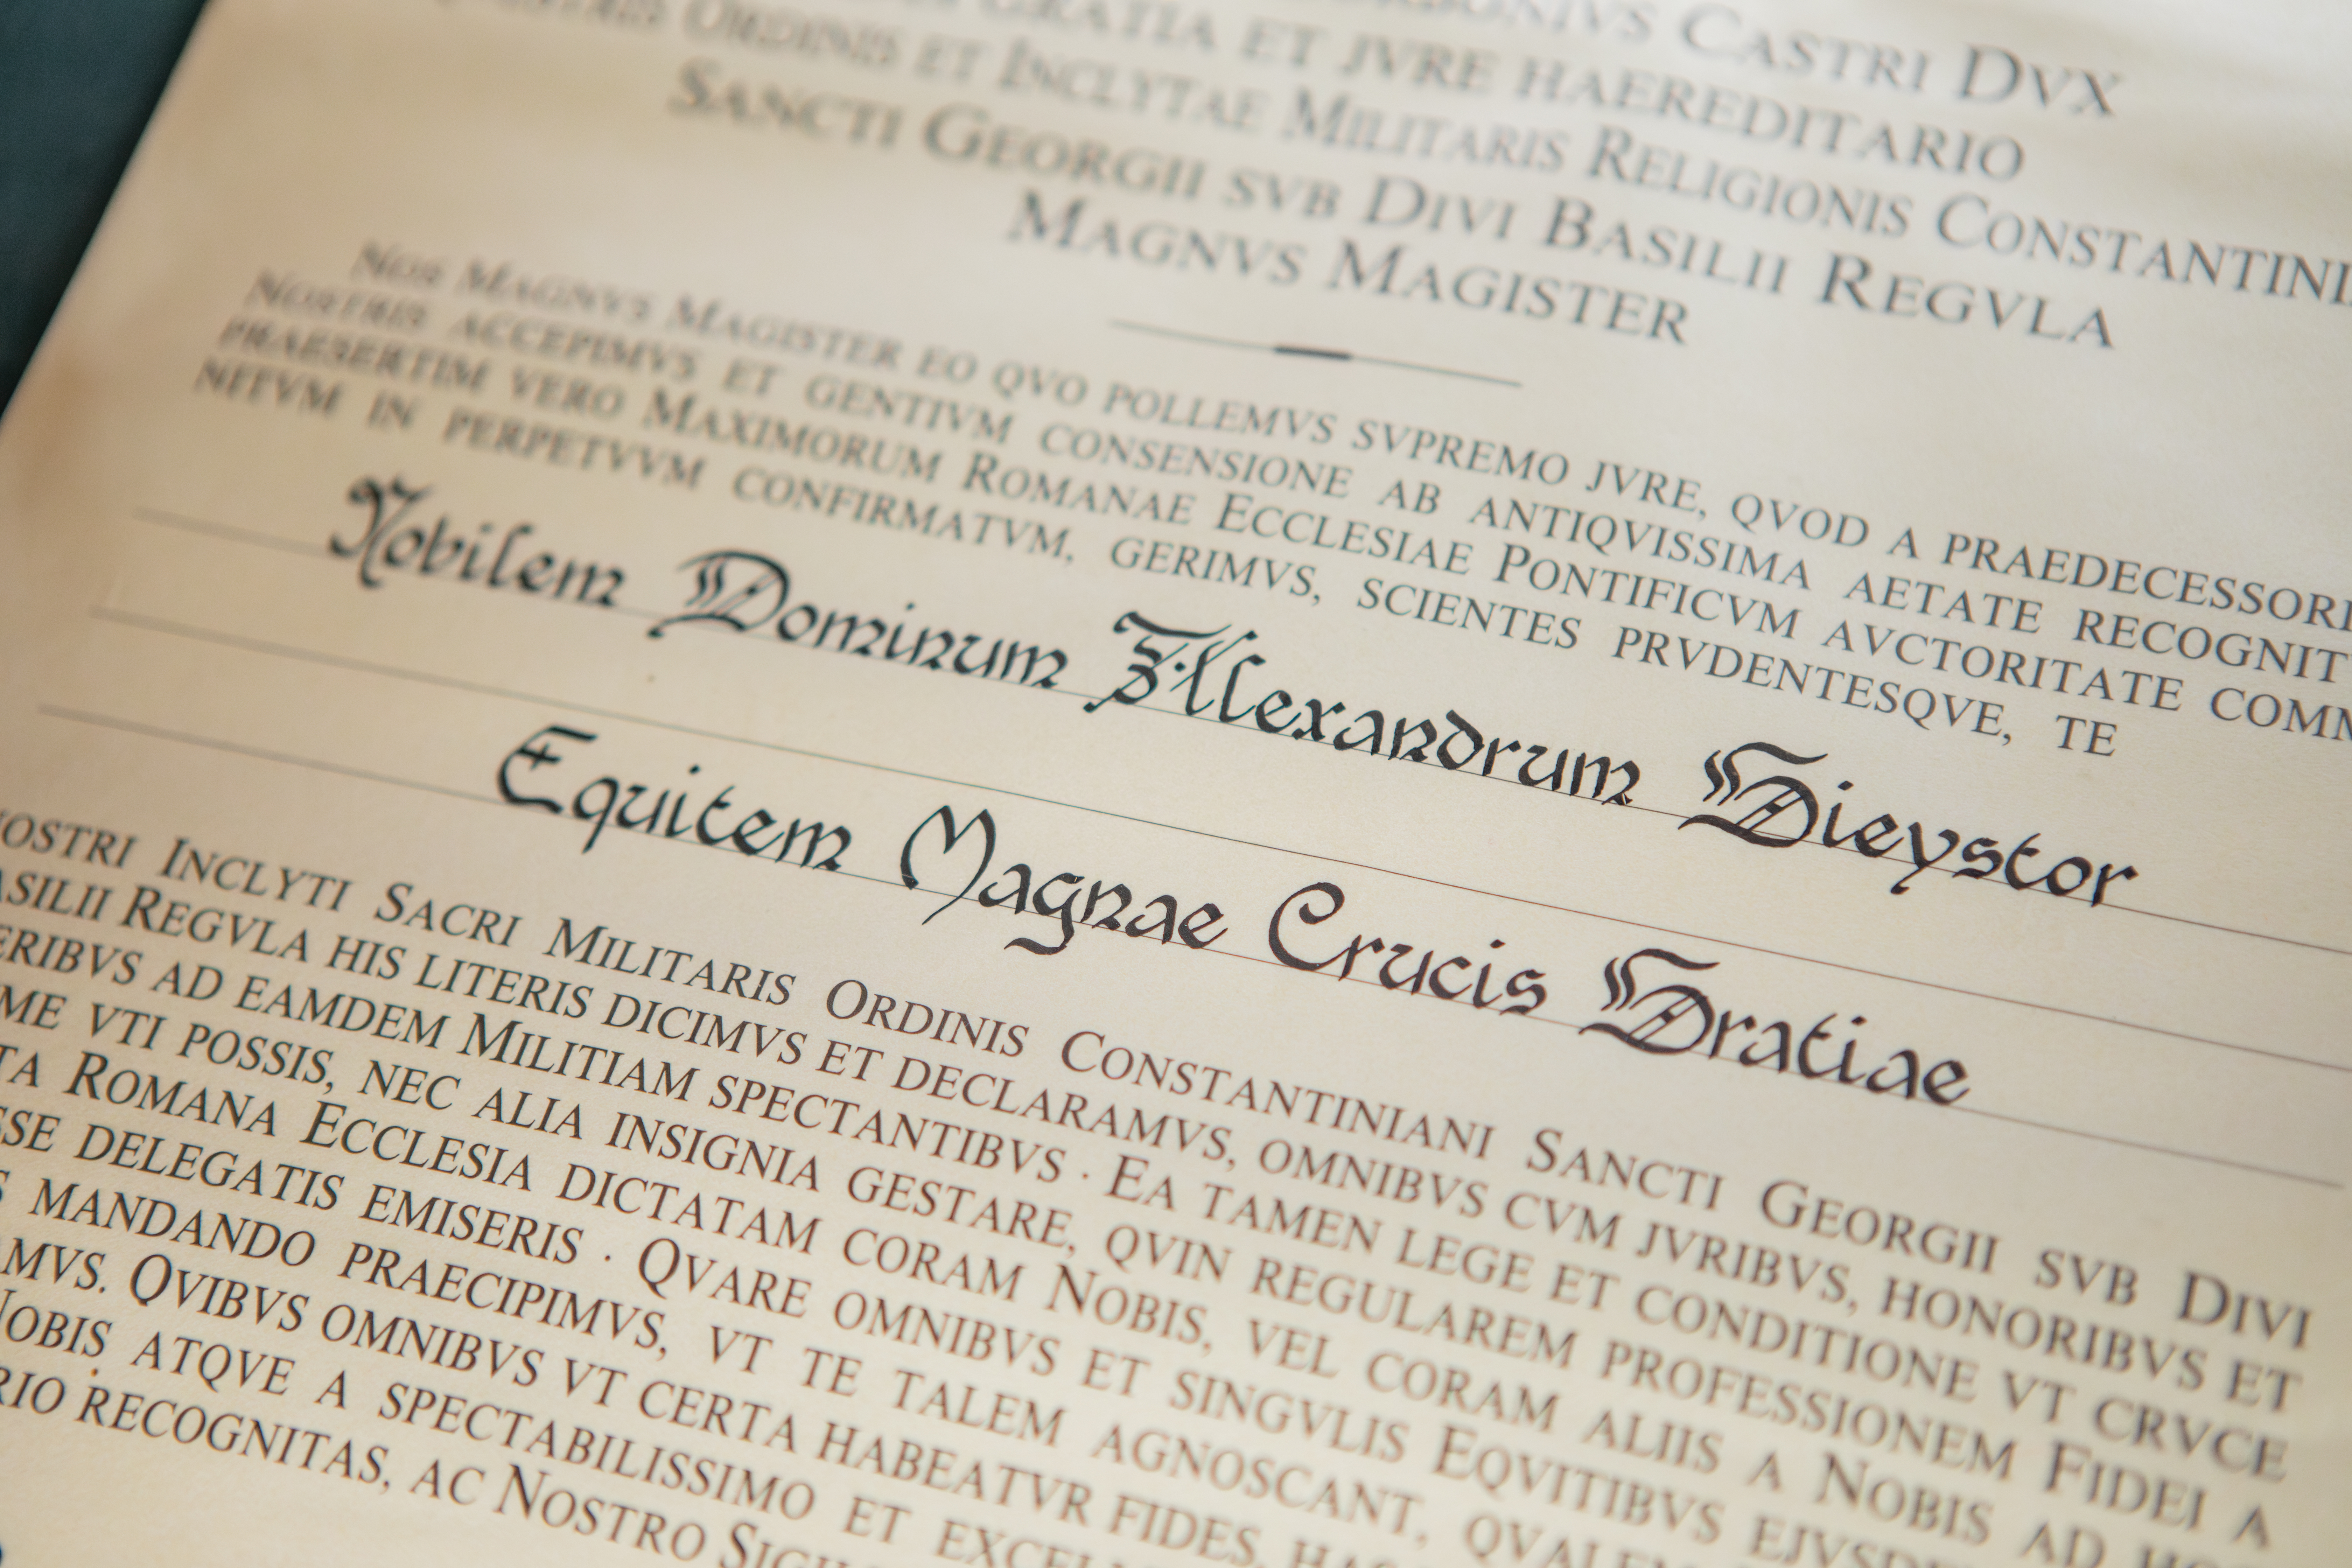 CASTRI DVX
GRATIA ET JVRE HAEREDITARIO
ORDINIS ET INCLYTAE MILITARIS RELIGIONIS CONSTANTINI
SANCTI GEORGII SVB DIVI BASILII REGVLA
MAGNVS MAGISTER
NOS MAGNVS MAGISTER EO QVO POLLEMVS SVPREMO JVRE, QVOD A PRAEDECESSORI
NOSTRIS ACCEPIMVS ET GENTIVM CONSENSIONE AB ANTIQVISSIMA AETATE RECOGNIT
PRAESERTIM VERO MAXIMORUM ROMANAE ECCLESIAE PONTIFICVM AVCTORITATE COMM
NITVM IN PERPETVVM CONFIRMATVM, GERIMVS, SCIENTES PRVDENTESQVE, TE
Nobilem Dominum Alexandrum Dieystor
Equitem Magnae Crucis Gratiae
OSTRI INCLYTI SACRI MILITARIS ORDINIS CONSTANTINIANI SANCTI GEORGII SVB DIVI
ASILII REGVLA HIS LITERIS DICIMVS ET DECLARAMVS, OMNIBVS CVM JVRIBVS, HONORIBVS ET
ERIBVS AD EAMDEM MILITIAM SPECTANTIBVS · EA TAMEN LEGE ET CONDITIONE VT CRVCE
ME VTI POSSIS, NEC ALIA INSIGNIA GESTARE, QVIN REGULAREM PROFESSIONEM FIDEI A
TA ROMANA ECCLESIA DICTATAM CORAM NOBIS, VEL CORAM ALIIS A NOBIS AD
SSE DELEGATIS EMISERIS · QVARE OMNIBVS ET SINGVLIS EQVITIBVS
S MANDANDO PRAECIPIMVS, VT TE TALEM AGNOSCANT,
AMVS. QVIBVS OMNIBVS VT CERTA HABEATVR FIDES,
NOBIS ATQVE A SPECTABILISSIMO ET
RIO RECOGNITAS, AC NOSTRO